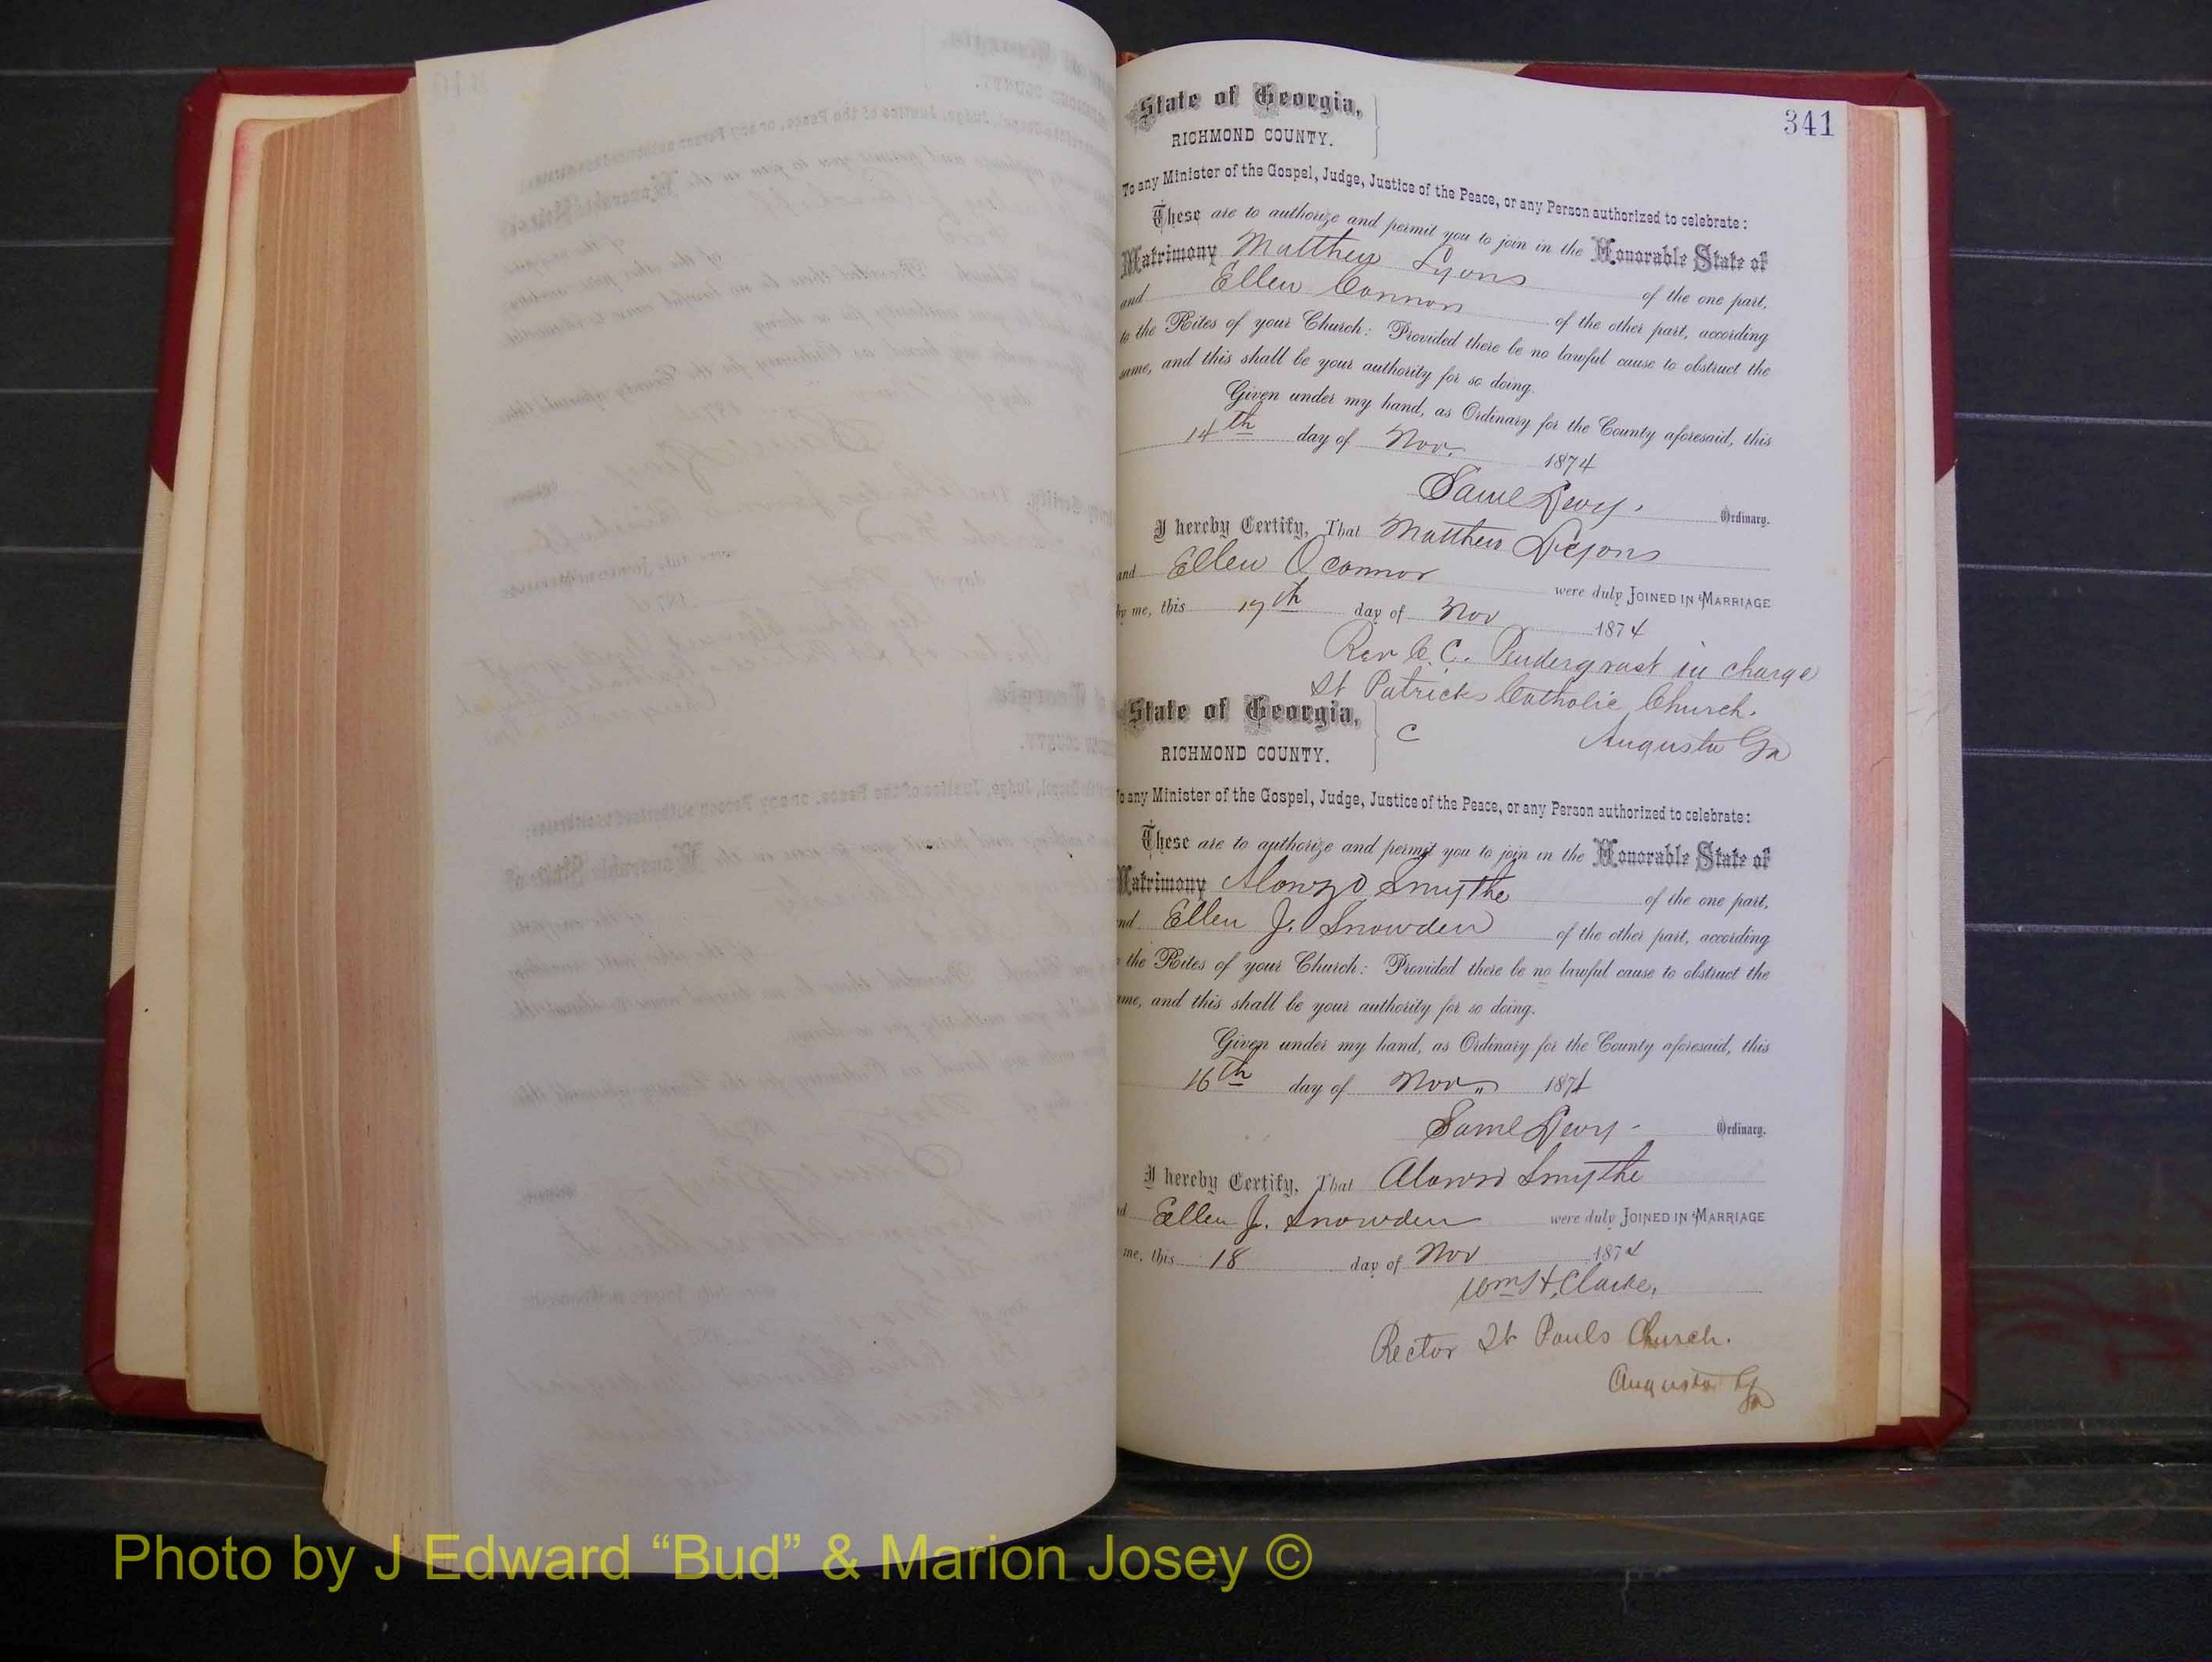 341
State of Georgia,
RICHMOND COUNTY.
To any Minister of the Gospel, Judge, Justice of the Peace, or any Person authorized to celebrate:
These are to authorize and permit you to join in the Honorable State of
Matrimony Matthew Lyons of the one part,
and Ellen Connor of the other part, according
to the Rites of your Church: Provided there be no lawful cause to obstruct the
same, and this shall be your authority for so doing.
Given under my hand, as Ordinary for the County aforesaid, this
14th day of Nov. 1874
Saml Levy. Ordinary.
I hereby Certify, That Matthew Lyons
and Ellen Oconnor were duly JOINED IN MARRIAGE
by me, this 17th day of Nov 1874
Rev C. C. Pendergrast in charge
St Patricks Catholic Church.
Augusta Ga
State of Georgia,
RICHMOND COUNTY.
C
To any Minister of the Gospel, Judge, Justice of the Peace, or any Person authorized to celebrate:
These are to authorize and permit you to join in the Honorable State of
Matrimony Alonzo Smythe of the one part,
nd Ellen J. Snowden of the other part, according
the Rites of your Church: Provided there be no lawful cause to obstruct the
ame, and this shall be your authority for so doing.
Given under my hand, as Ordinary for the County aforesaid, this
16th day of Nov 1874
Saml Levy - Ordinary.
I hereby Certify, That Alonzo Smythe
d Ellen J. Snowden were duly JOINED IN MARRIAGE
me, this 18 day of Nov 1874
Wm H. Clarke,
Rector St Pauls Church.
Augusta Ga
Photo by J Edward “Bud” & Marion Josey ©